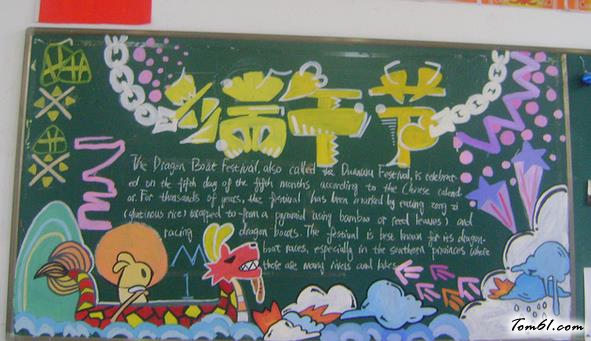 端午节
The Dragon Boat Festival, also called the Duanwu Festival, is celebrat-
ed on the fifth day of the fifth months according to the Chinese calend-
ar. For thousands of years, the festival has been marked by eating zong zi
(glutinous rice) wrapped to form a pyramid using bamboo or reed leaves) and
racing dragon boats. The festival is best known for its dragon-
boat races, especially in the southern provinces where
there are many rivers and lakes
Tom61.com